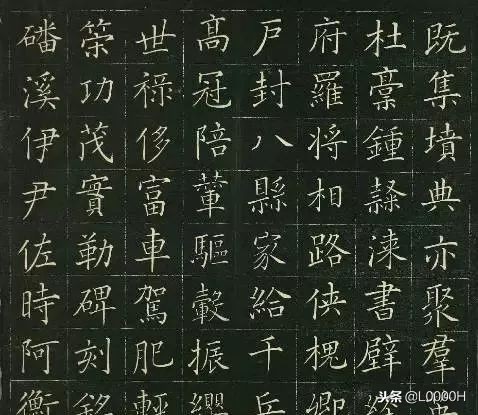 既集墳典亦聚羣
杜稾鍾隸漆書壁
府羅將相路俠槐卿
戶封八縣家給千兵
髙冠陪輦驅轂振纓
世祿侈富車駕肥輕
策功茂實勒碑刻銘
磻溪伊尹佐時阿衡
头条 @L0000H